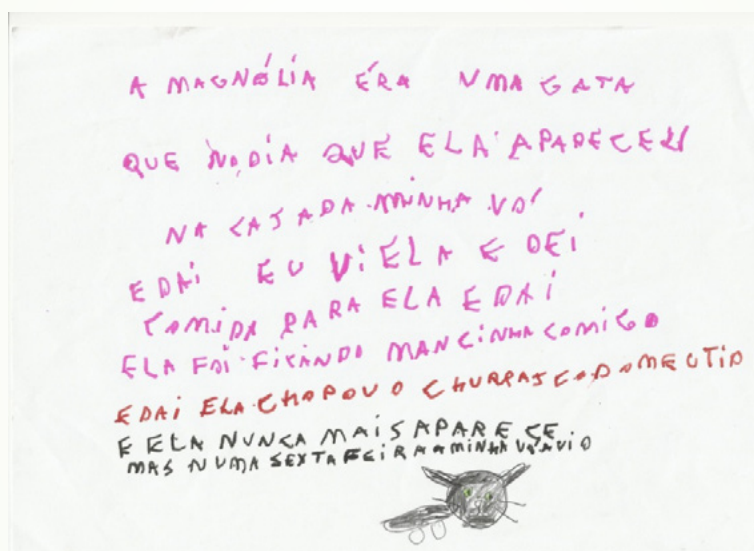 A MAGNÓLIA ÉRA UMA GATA
QUE NO DIA QUE ELA APARECEU
NA CASA DA MINHA VÓ
E DAÍ EU VI ELA E DEI
COMIDA PARA ELA E DAÍ
ELA FOI FICANDO MANCINHA COMIGO
E DAÍ ELA CHOROU O CHURRASCO DO MEU TIO
E ELA NUNCA MAIS APARESE
MAS NUMA SEXTA FEIRA A MINHA VÓ A VIO